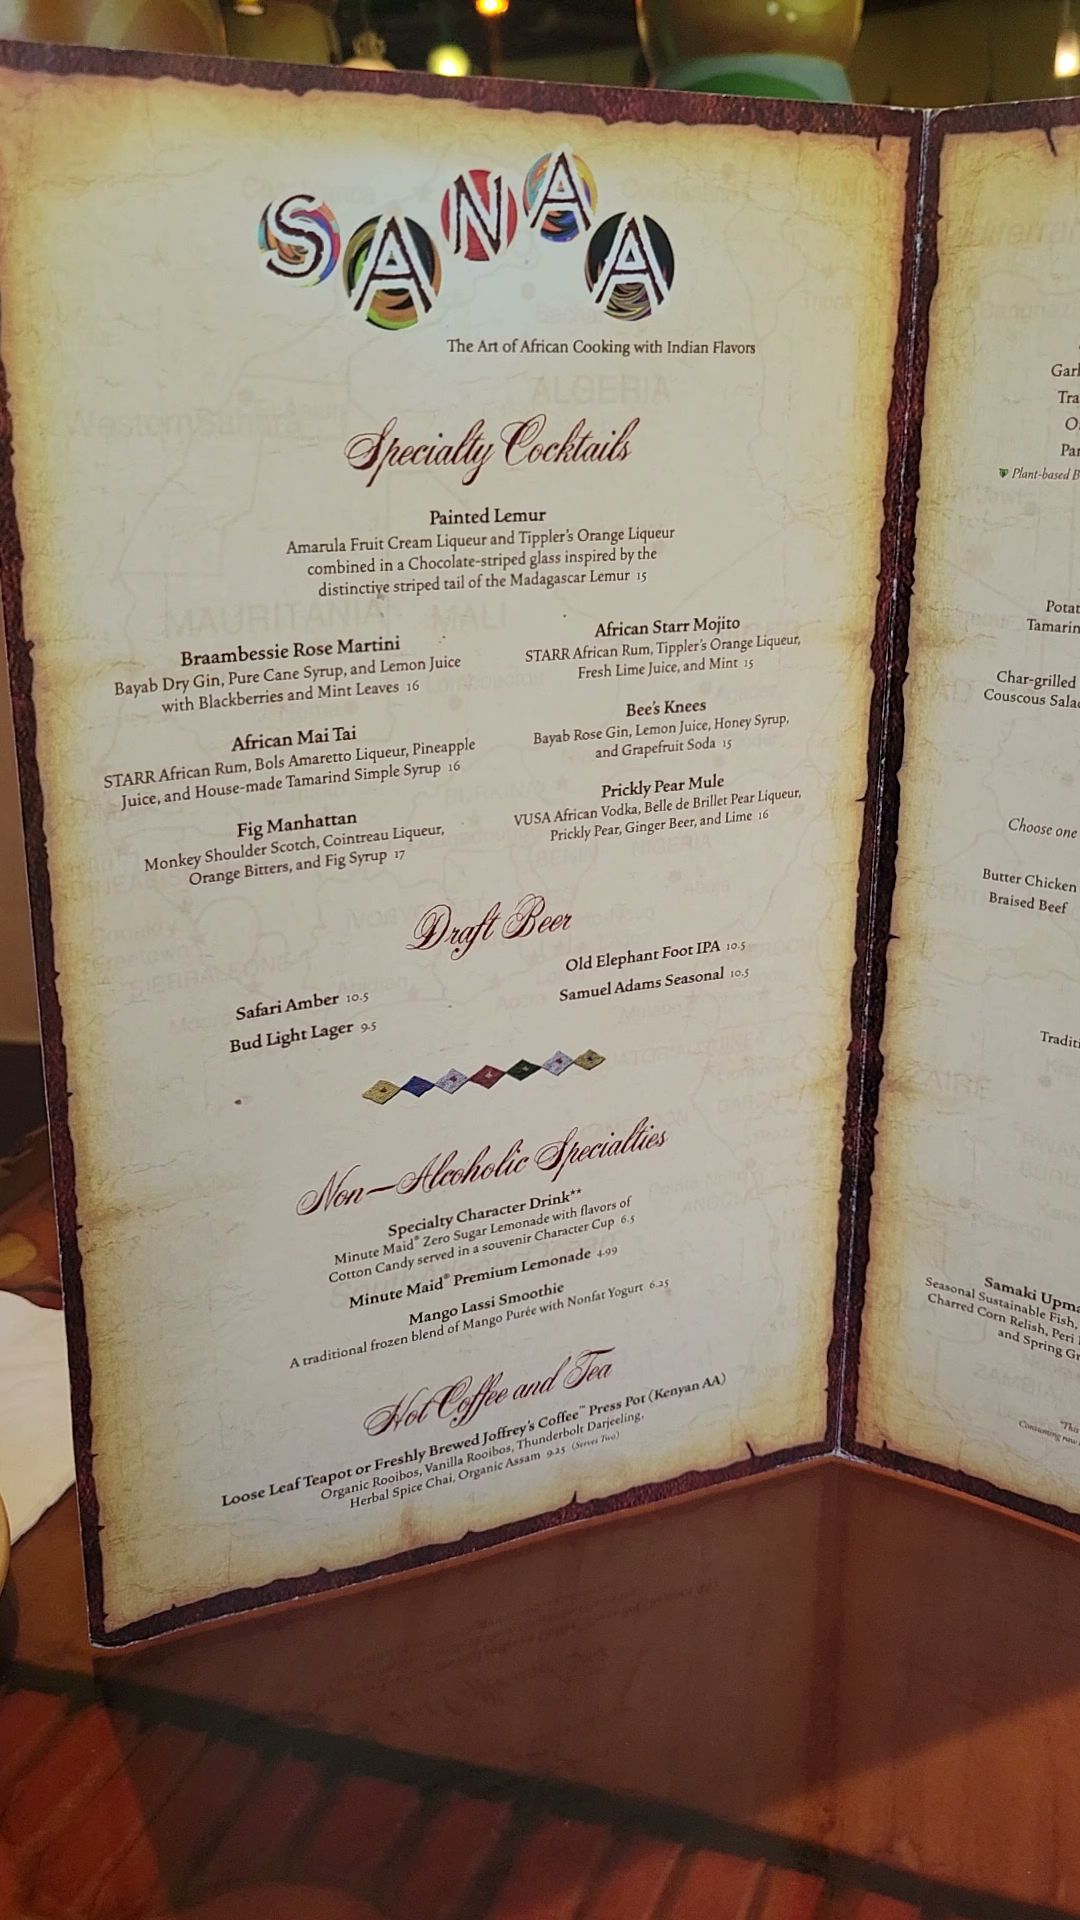 SANAA
The Art of African Cooking with Indian Flavors
Specialty Cocktails
Painted Lemur
Amarula Fruit Cream Liqueur and Tippler's Orange Liqueur
combined in a Chocolate-striped glass inspired by the
distinctive striped tail of the Madagascar Lemur 15
Braambessie Rose Martini
Bayab Dry Gin, Pure Cane Syrup, and Lemon Juice
with Blackberries and Mint Leaves 16
African Mai Tai
STARR African Rum, Bols Amaretto Liqueur, Pineapple
Juice, and House-made Tamarind Simple Syrup 16
Fig Manhattan
Monkey Shoulder Scotch, Cointreau Liqueur,
Orange Bitters, and Fig Syrup 17
African Starr Mojito
STARR African Rum, Tippler's Orange Liqueur,
Fresh Lime Juice, and Mint 15
Bee's Knees
Bayab Rose Gin, Lemon Juice, Honey Syrup,
and Grapefruit Soda 15
Prickly Pear Mule
VUSA African Vodka, Belle de Brillet Pear Liqueur,
Prickly Pear, Ginger Beer, and Lime 16
Draft Beer
Safari Amber 10.5
Bud Light Lager 9.5
Old Elephant Foot IPA 10.5
Samuel Adams Seasonal 10.5
Non-Alcoholic Specialties
Specialty Character Drink**
Minute Maid® Zero Sugar Lemonade with flavors of
Cotton Candy served in a souvenir Character Cup 6.5
Minute Maid® Premium Lemonade 4.99
Mango Lassi Smoothie
A traditional frozen blend of Mango Purée with Nonfat Yogurt 6.25
Hot Coffee and Tea
Loose Leaf Teapot or Freshly Brewed Joffrey's Coffee™ Press Pot (Kenyan AA)
Organic Rooibos, Vanilla Rooibos, Thunderbolt Darjeeling,
Herbal Spice Chai, Organic Assam 9.25 (Serves Two)
ALGERIA
Western Sahara
MAURITANIA
MALI
Plant-based
Char-grilled
Choose one
Butter Chicken
Braised Beef
Samaki
Seasonal Sustainable Fish,
Charred Corn Relish, Peri
and Spring